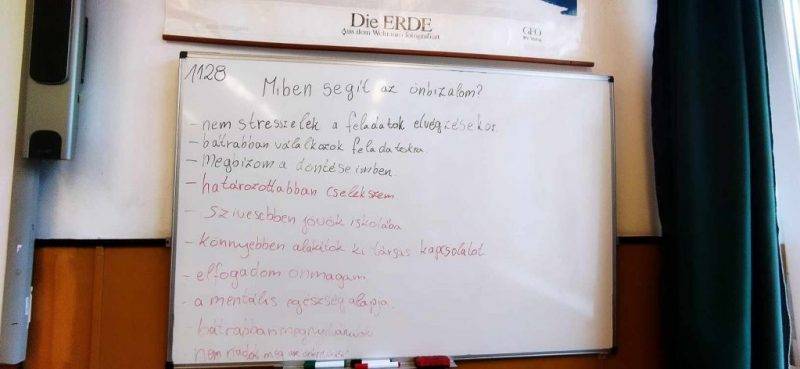 Die ERDE
aus dem Weltraum fotografiert
GEO
1128
Miben segít az önbizalom?
- nem stresszelek a feladatok elvégzésekor.
- bátrabban vállalkozok feladatokra.
- Megbízom a döntéseimben.
- határozottabban cselekszem
- szívesebben jövök iskolába
- könnyebben alakítok ki társas kapcsolatot
- elfogadom önmagam
- a mentális egészség alapja.
- bátrabban megnyilvánulok
- nem riadok meg